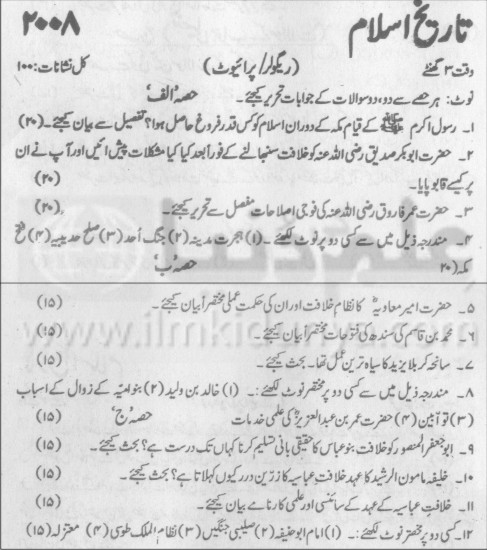 تاریخ اسلام ۲۰۰۸
وقت ۳ گھنٹے (ریگولر/پرائیوٹ) کل نشانات: ۱۰۰
نوٹ: ہر حصے سے دو، دو سوالات کے جوابات تحریر کیجئے۔ حصہ 'الف'
۱۔ رسول اکرم ﷺ کے قیام مکہ کے دوران اسلام کو کس قدر فروغ حاصل ہوا؟ تفصیل سے بیان کیجئے۔ (۲۰)
۲۔ حضرت ابوبکر صدیق رضی اللہ عنہ کو خلافت سنبھالنے کے فوراً بعد کیا کیا مشکلات پیش آئیں اور آپ نے ان
پر کیسے قابو پایا۔ (۲۰)
۳۔ حضرت عمر فاروق رضی اللہ عنہ کی فوجی اصلاحات مفصل سے تحریر کیجئے۔ (۲۰)
۴۔ مندرجہ ذیل میں سے کسی دو پر نوٹ لکھئے۔ (۱) ہجرت مدینہ (۲) جنگ اُحد (۳) صلح حدیبیہ (۴) فتح
مکہ (۲۰) حصہ 'ب'
۵۔ حضرت امیر معاویہؓ کا نظام خلافت اور ان کی حکمت عملی مختصراً بیان کیجئے۔ (۱۵)
۶۔ محمد بن قاسم کی سندھ کی فتوحات مختصراً بیان کیجئے۔ (۱۵)
www.ilmki
۷۔ سانحہ کربلا یزید کا سیاہ ترین عمل تھا۔ بحث کیجئے۔ (۱۵)
۸۔ مندرجہ ذیل میں سے کسی دو پر مختصر نوٹ لکھئے:۔ (۱) خالد بن ولید (۲) بنو امیہ کے زوال کے اسباب
(۳) توابین (۴) حضرت عمر بن عبدالعزیزؒ کی علمی خدمات (۱۵) حصہ 'ج'
۹۔ ابو جعفر المنصور کو خلافت بنو عباس کا حقیقی بانی تسلیم کرنا کہاں تک درست ہے؟ بحث کیجئے۔ (۱۵)
۱۰۔ خلیفہ مامون الرشید کا عہد خلافت عباسیہ کا زرّین دور کیوں کہلاتا ہے؟ بحث کیجئے۔ (۱۵)
۱۱۔ خلافت عباسیہ کے عہد کے سائنسی اور علمی کارنامے بیان کیجئے۔ (۱۵)
۱۲۔ کسی دو پر مختصر نوٹ لکھئے:۔ (۱) امام ابو حنیفہ (۲) صلیبی جنگیں (۳) نظام الملک طوسی (۴) معتزلہ (۱۵)